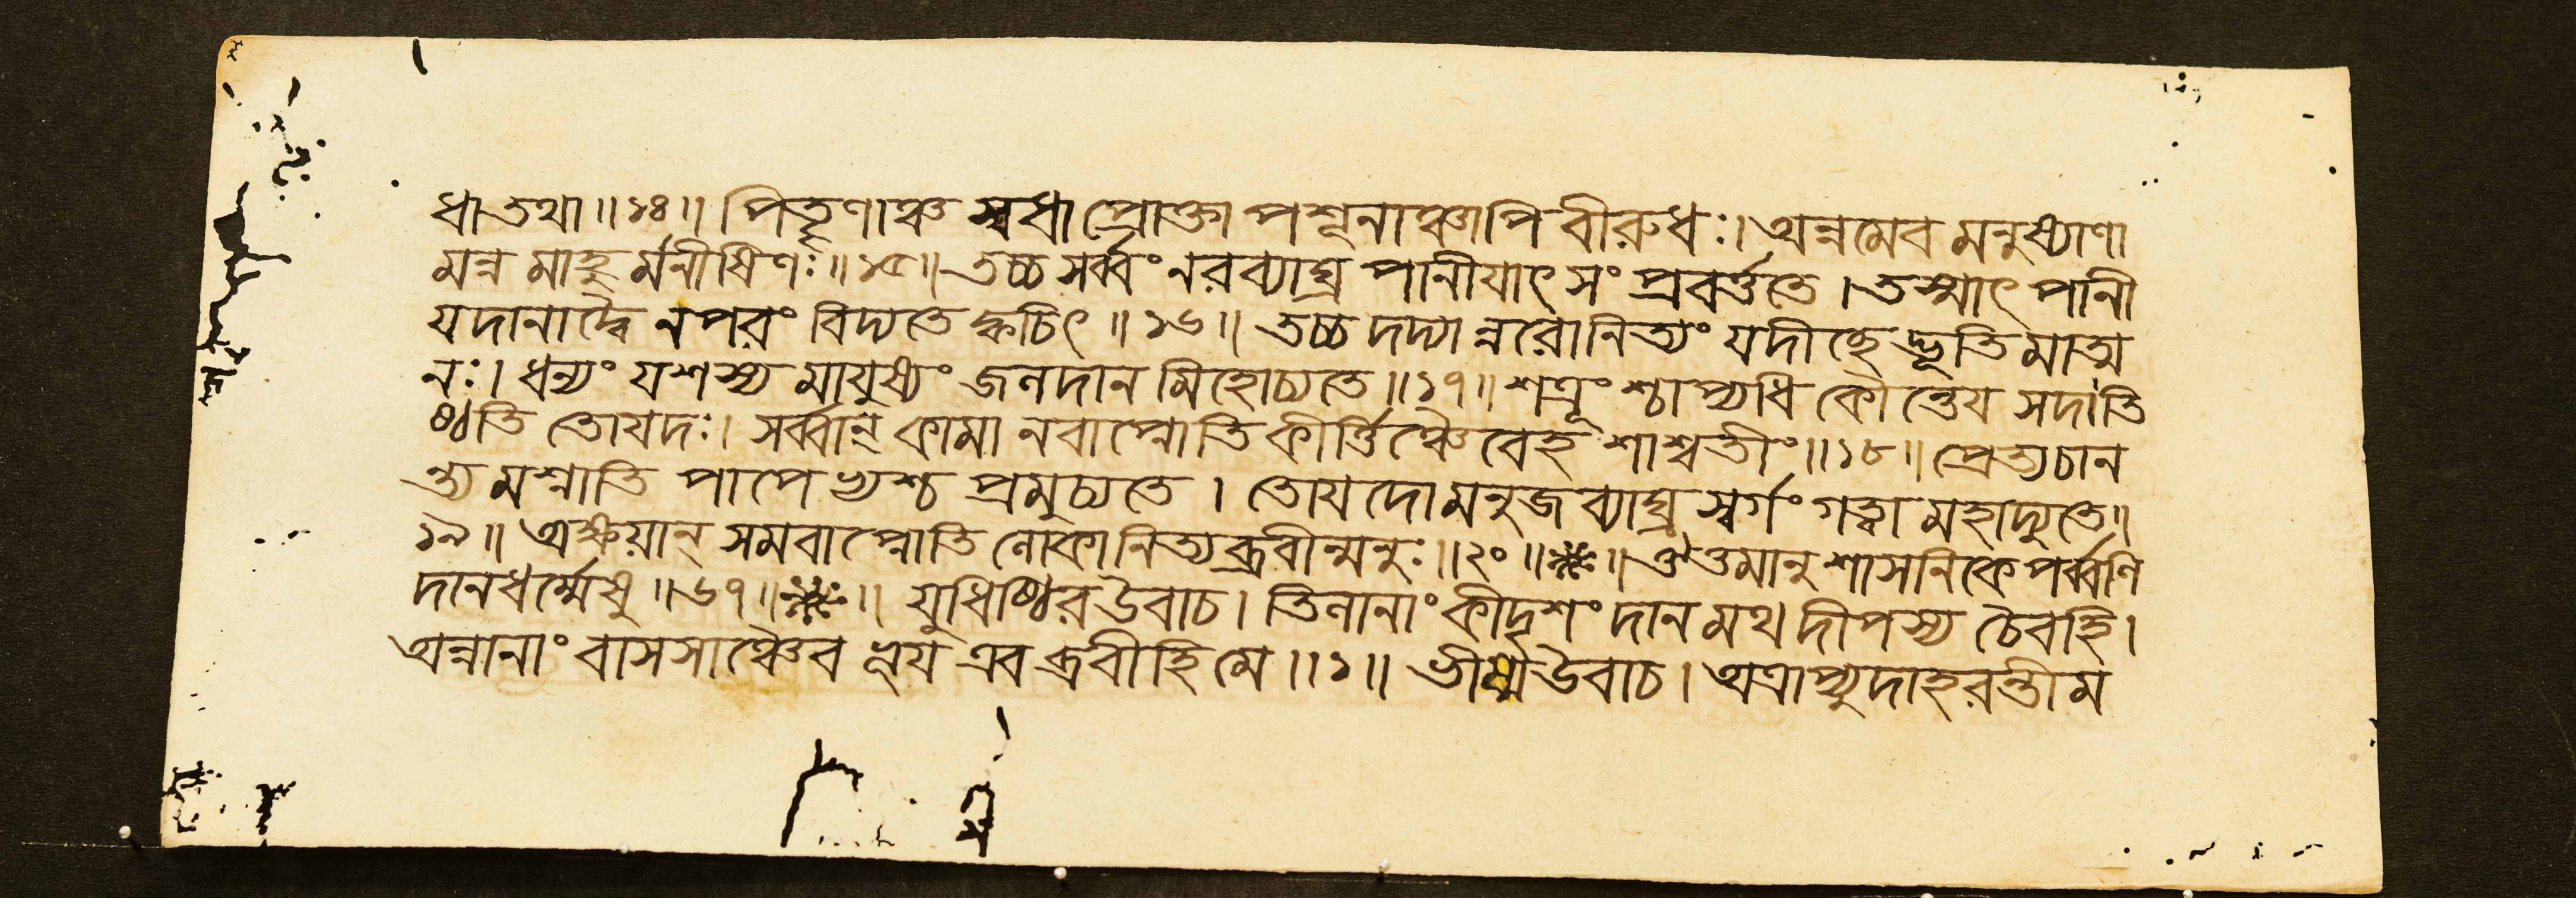 ধাতথা॥১৪॥ পিতৄণাঞ্চ স্বধা প্রোক্তা পশূনাঞ্চাপি বীরুধঃ। অন্নমেব মনুষ্যাণা
মন্ন মাহু র্মনীষিণঃ॥১৫॥ তচ্চ সর্ব্বং নরব্যাঘ্র পানীযাৎ সং প্রবর্ত্ততে । তস্মাৎ পানী
যদানাদ্বৈ নপরং বিদ্যতে ক্বচিৎ॥১৬॥ তচ্চ দদ্যা ন্নরোনিত্যং যদীচ্ছে দ্ভূতি মাত্ম
নঃ। ধন্যং যশস্য মাযুষ্যং জলদান মিহোচ্যতে॥১৭॥ শত্রূং শ্চাপ্যধি কৌন্তেয সদাতি
ষ্ঠতি তোযদঃ। সর্ব্বান্ কামা নবাপ্নোতি কীর্ত্তিঞ্চৈবেহ শাশ্বতীং॥১৮॥ প্রেত্যচান
ন্ত্য মশ্নাতি পাপে ভ্যশ্চ প্রমুচ্যতে । তোযদো মনুজ ব্যাঘ্র স্বর্গং গত্বা মহাদ্যুতে॥
১৯॥ অক্ষয়ান্ সমবাপ্নোতি লোকানিত্যব্রবীন্মনুঃ॥২০॥ ইত্যানুশাসনিকে পর্ব্বণি
দানধর্ম্মেষু॥৬৭॥ যুধিষ্ঠির উবাচ। তিলানাং কীদৃশং দান মথ দীপস্য চৈবহি।
অন্নানাং বাসসাঞ্চৈব ভূয এব ব্রবীহি মে॥১॥ ভীষ্ম উবাচ। অত্রাপ্যুদাহরন্তীম